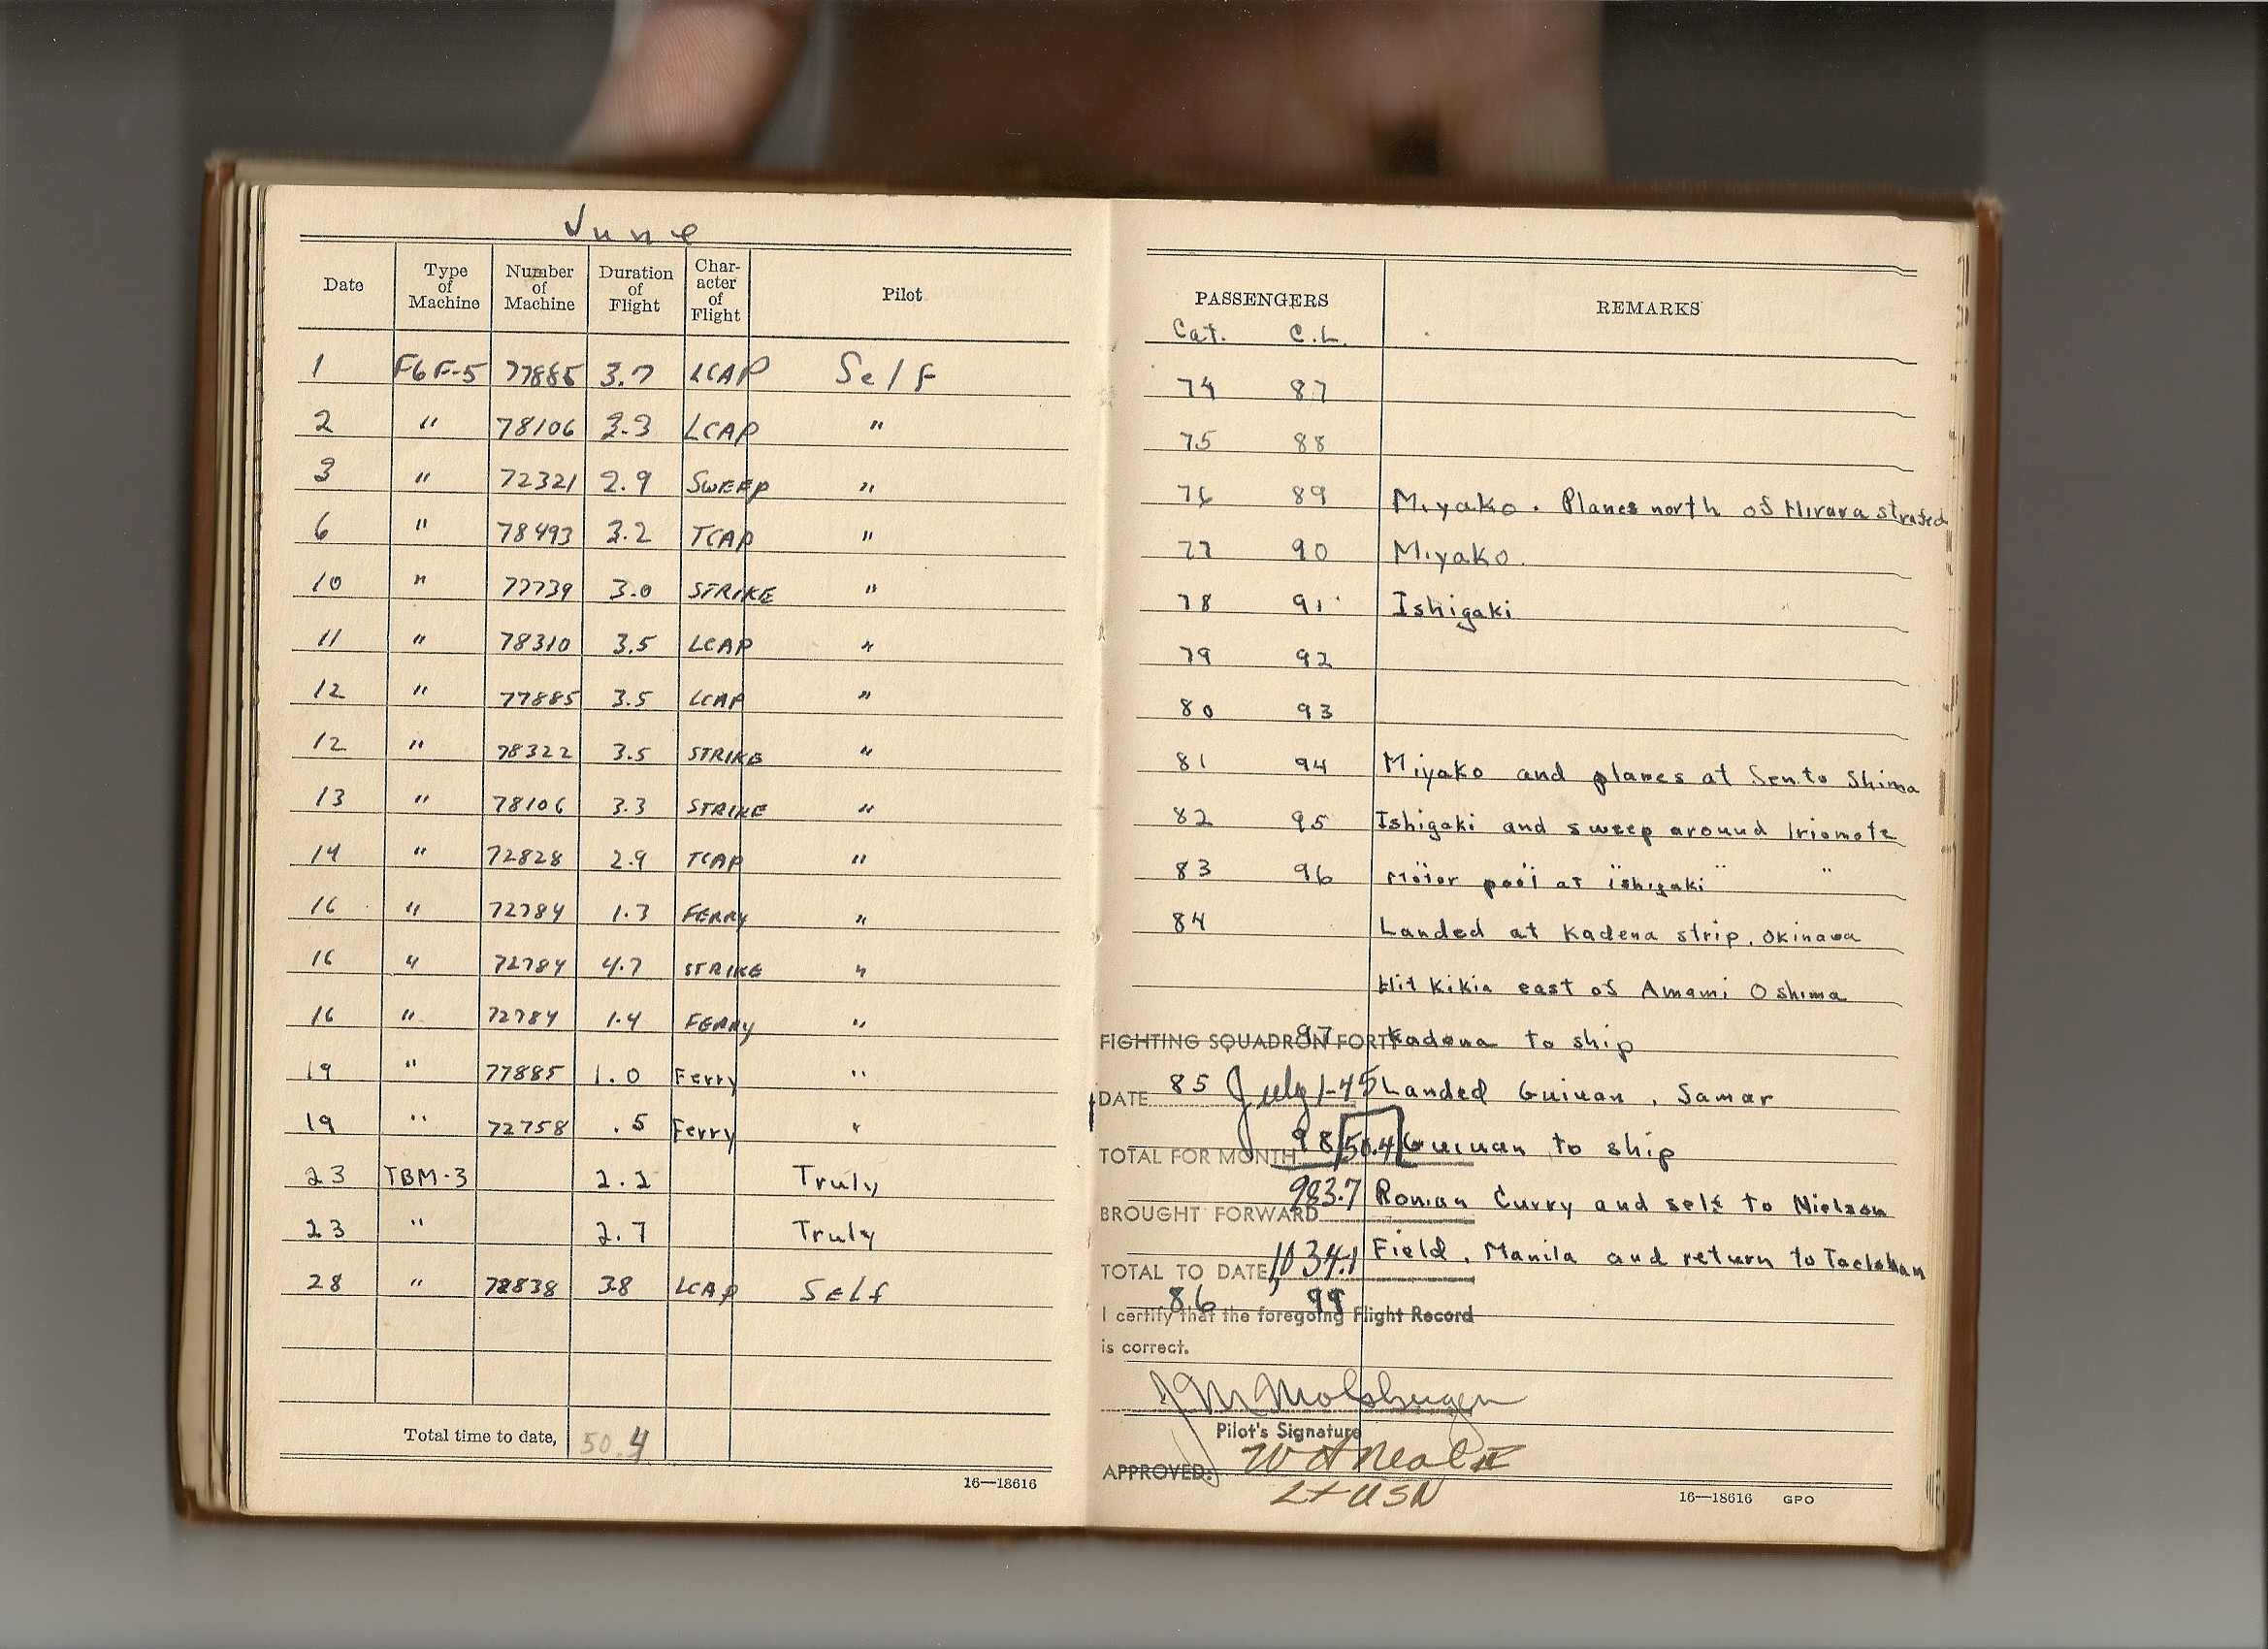 June
Date Type of Machine Number of Machine Duration of Flight Char-acter of Flight Pilot
1 F6F-5 77885 3.7 LCAP Self
2 " 78106 3.3 LCAP "
3 " 72321 2.9 SWEEP "
6 " 78493 3.2 TCAP "
10 " 77739 3.0 STRIKE "
11 " 78310 3.5 LCAP "
12 " 77885 3.5 LCAP "
12 " 78322 3.5 STRIKE "
13 " 78106 3.3 STRIKE "
14 " 72828 2.9 TCAP "
16 " 72784 1.3 FERRY "
16 " 72784 4.7 STRIKE "
16 " 72784 1.4 FERRY "
19 " 77885 1.0 Ferry "
19 " 72758 .5 Ferry "
23 TBM-3 2.2 Truly
23 " 2.7 Truly
28 " 72838 3.8 LCAP Self
Total time to date, 50.4
16—18616
PASSENGERS REMARKS
Cat. C.L.
74 87
75 88
76 89 Miyako. Planes north of Hirara strafed
77 90 Miyako.
78 91 Ishigaki
79 92
80 93
81 94 Miyako and planes at Sento Shima
82 95 Ishigaki and sweep around Iriomote
83 96 Motor pool at Ishigaki " "
84 Landed at Kadena strip, Okinawa
Hit Kikia east of Amami O shima
97 Kadena to ship
FIGHTING SQUADRON FORTY
85 Landed Guiuan, Samar
DATE July 1-45
98 Guiuan to ship
TOTAL FOR MONTH 50.4
Roman Curry and self to Nielson
BROUGHT FORWARD 983.7
Field, Manila and return to Tacloban
TOTAL TO DATE, 1034.1
86 99
I certify that the foregoing Flight Record
is correct.
J M Molsbergen
Pilot's Signature
APPROVED: W A Neal II
Lt USN
16—18616 GPO